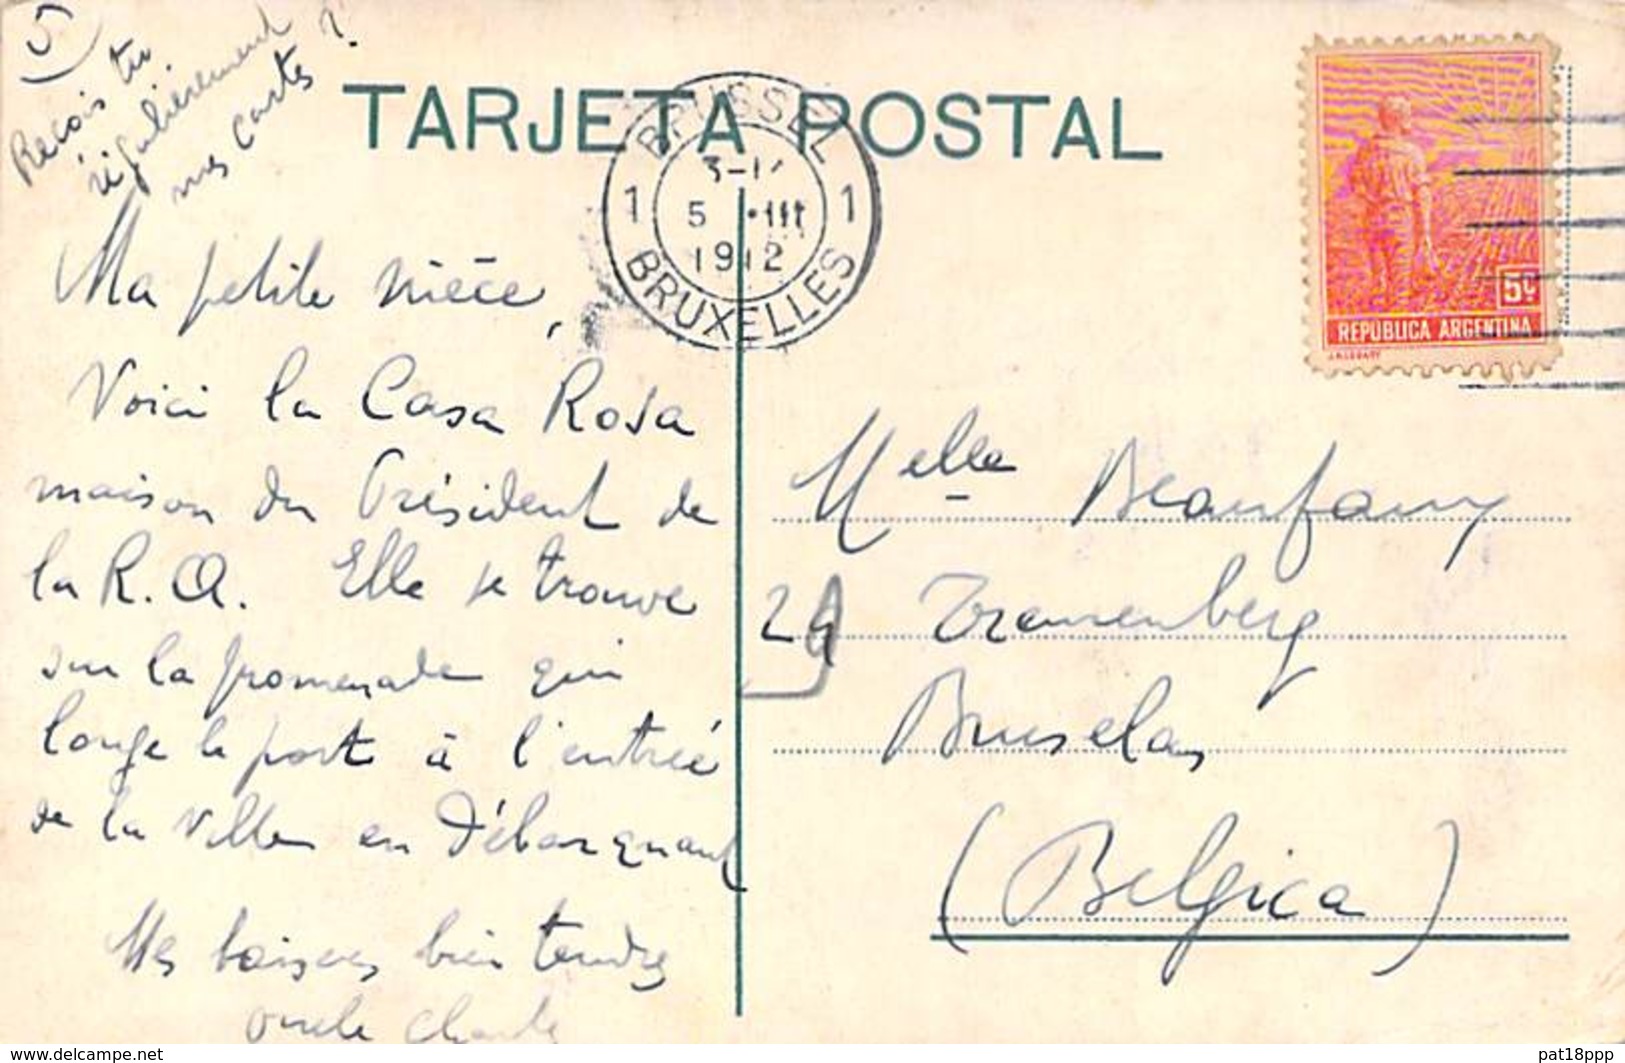 5
Reçois tu
régulièrement
mes cartes ?
TARJETA POSTAL
BRUSSEL
1 5 III 1
1912
BRUXELLES
5c
REPÚBLICA ARGENTINA
Ma petite nièce,
Voici la Casa Rosa
maison du Président de
la R.A. Elle se trouve
sur la promenade qui
longe le port à l'entrée
de la ville en débarquant
Mes baisers bien tendres
oncle
Melle
24
Bruselas
(Belgica)
www.delcampe.net
pat18ppp